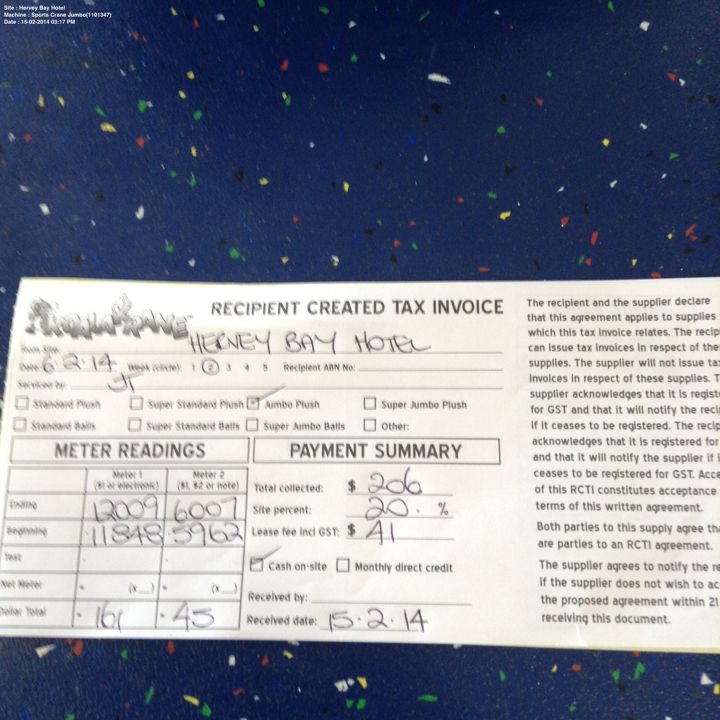 Site : Hervey Bay Hotel
Machine : Sports Crane Jumbo(1101347)
Date : 15-02-2014 03:17 PM
RECIPIENT CREATED TAX INVOICE
HERVEY BAY HOTEL
Date: 6.2.14 Week (circle): 1 2 3 4 5 Recipient ABN No:
Serviced by: JT
Standard Plush Super Standard Plush Jumbo Plush Super Jumbo Plush
Standard Balls Super Standard Balls Super Jumbo Balls Other:
METER READINGS
Meter 1 Meter 2
($1 or electronic) ($1, $2 or note)
Ending 12009 6007
Beginning 11848 5962
Test
Net Meter (x__) (x__)
Dollar Total 161 45
PAYMENT SUMMARY
Total collected: $ 206
Site percent: 20. %
Lease fee incl GST: $ 41
Cash on-site Monthly direct credit
Received by:
Received date: 15.2.14
The recipient and the supplier declare
that this agreement applies to supplies
which this tax invoice relates. The recip
can issue tax invoices in respect of the
supplies. The supplier will not issue ta
invoices in respect of these supplies. T
supplier acknowledges that it is regist
for GST and that it will notify the recip
if it ceases to be registered. The recip
acknowledges that it is registered for
and that it will notify the supplier if i
ceases to be registered for GST. Acce
of this RCTI constitutes acceptance
terms of this written agreement.
Both parties to this supply agree tha
are parties to an RCTI agreement.
The supplier agrees to notify the re
if the supplier does not wish to ac
the proposed agreement within 21
receiving this document.